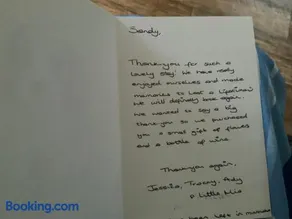 Sandy,
Thankyou for such a
lovely stay. We have really
enjoyed ourselves and made
memories to Last a Lifetime!
We will definitely book again.
We wanted to say a big
thankyou so we purchased
you a small gift of flowers
and a bottle of wine
Thankyou again,
Jessica, Tracey,
& Little Mia
Booking.com